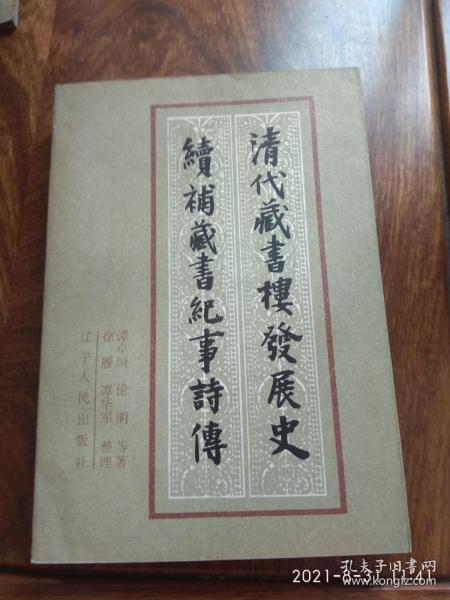 清代藏書樓發展史
續補藏書紀事詩傳
谭卓垣 伦明 等著
徐雁 谭华军 整理
辽宁人民出版社
2021-8-31 11:41
孔夫子旧书网
www.kongfz.com